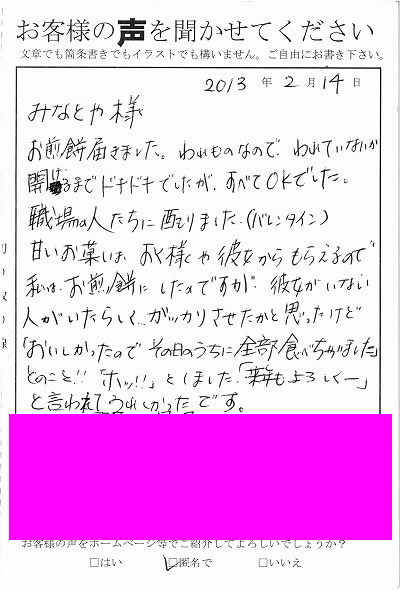 お客様の声を聞かせてください
文章でも箇条書きでもイラストでも構いません。ご自由にお書き下さい。
2013 年 2 月 14 日
みなとや 様
お煎餅届きました。われものなので、われていないか
開けるまでドキドキでしたが、すべてOKでした。
職場の人たちに配りました。(バレンタイン)
甘いお菓子は、おく様や彼女からもらえるので
私は、お煎餅にしたのですが、彼女がいない
人がいたらしく、ガッカリさせたかと思ったけど
「おいしかったので その日のうちに全部食べちゃいました」
とのこと!! 「ホッ!!」としました。「来年もよろしくー」
と言われてうれしかったです。
お客様の声をホームページ等でご紹介してよろしいでしょうか?
□はい □匿名で □いいえ